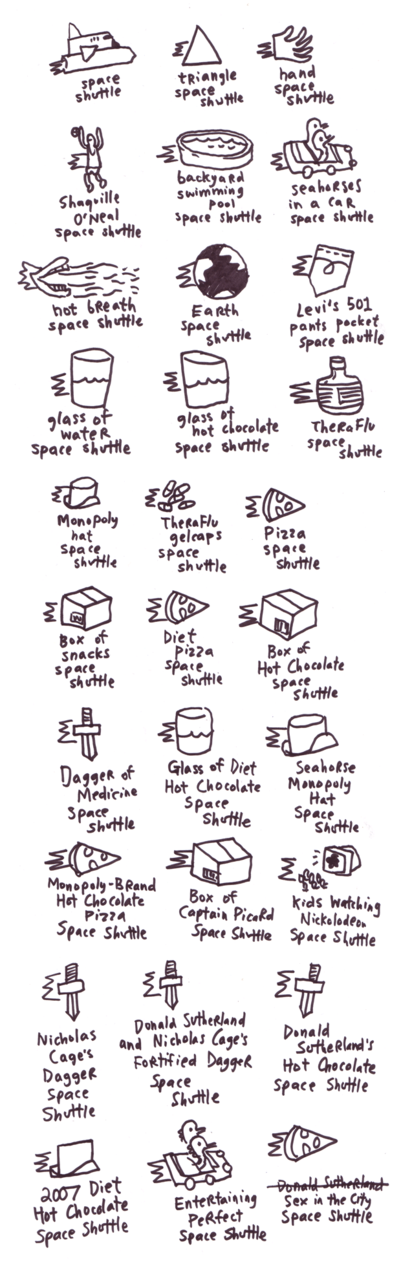 space
shuttle
triangle
space
shuttle
hand
space
shuttle
Shaquille
O'Neal
space shuttle
backyard
swimming
pool
space shuttle
seahorses
in a car
space shuttle
hot breath
space shuttle
Earth
space
shuttle
Levi's 501
pants pocket
space shuttle
glass of
water
space shuttle
glass of
hot chocolate
space shuttle
TheraFlu
space
shuttle
Monopoly
hat
space
shuttle
TheraFlu
gelcaps
space
shuttle
Pizza
space
shuttle
Box of
snacks
space
shuttle
Diet
Pizza
space
shuttle
Box of
Hot Chocolate
space
shuttle
Dagger of
Medicine
space
shuttle
Glass of Diet
Hot Chocolate
Space
Shuttle
Seahorse
Monopoly
Hat
Space
Shuttle
Monopoly-Brand
Hot Chocolate
Pizza
Space Shuttle
Box of
Captain Picard
Space Shuttle
Kids Watching
Nickolodeon
Space Shuttle
Nicholas
Cage's
Dagger
Space
Shuttle
Donald Sutherland
and Nicholas Cage's
Fortified Dagger
Space
Shuttle
Donald
Sutherland's
Hot Chocolate
Space Shuttle
2007 Diet
Hot Chocolate
Space Shuttle
Entertaining
Perfect
Space Shuttle
Donald Sutherland
Sex in the City
Space Shuttle